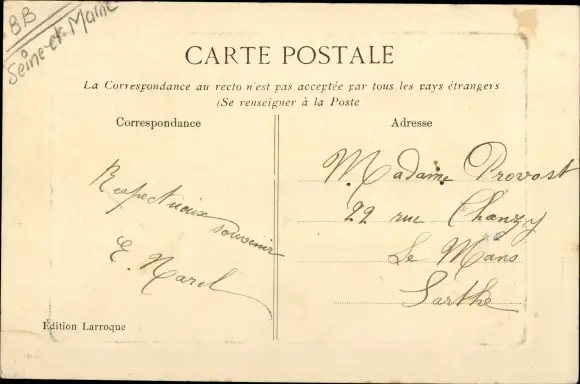 8B
Seine-et-Marne
CARTE POSTALE
La Correspondance au recto n'est pas acceptée par tous les pays étrangers
(Se renseigner à la Poste
Correspondance
Adresse
Respectueux
souvenir
E. Marel
Madame Provost
22 rue Chanzy
Le Mans
Sarthe
Édition Larroque